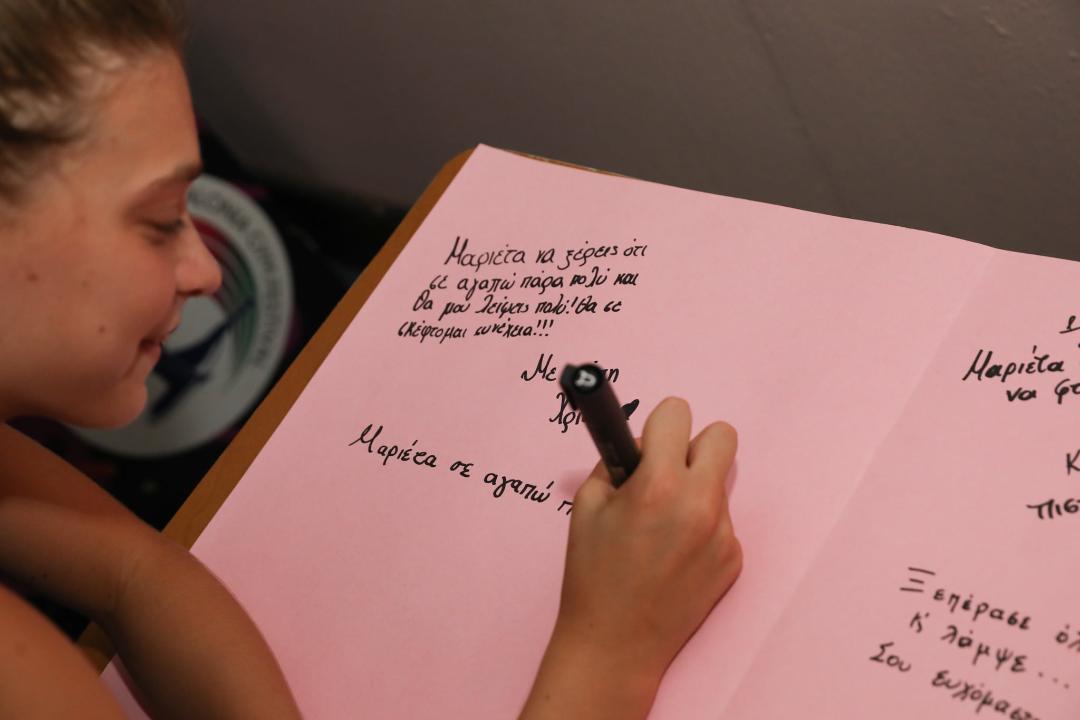 Μαριέτα να ξέρεις ότι
σε αγαπώ πάρα πολύ και
θα μου λείψεις πολύ! Θα σε
σκέφτομαι συνέχεια!!!
Με
Μαριέτα σε αγαπώ π
Μαριέτα
να
Κ
Ξεπέρασε
κ' λάμψε...
Σου